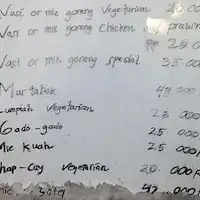 Nasi or mie goreng Vegetarian 25 00
Nasi or mie goreng Chicken or prawn
Rp 25.0
Nasi or mie goreng spesial 35 000
Martabak 45 000
Lumpiah Vegetarian 25 000
Gado-gado 25 000
Mie Kuah 25 000
Chap-Cay Vegetarian 20.000
sate 45.000